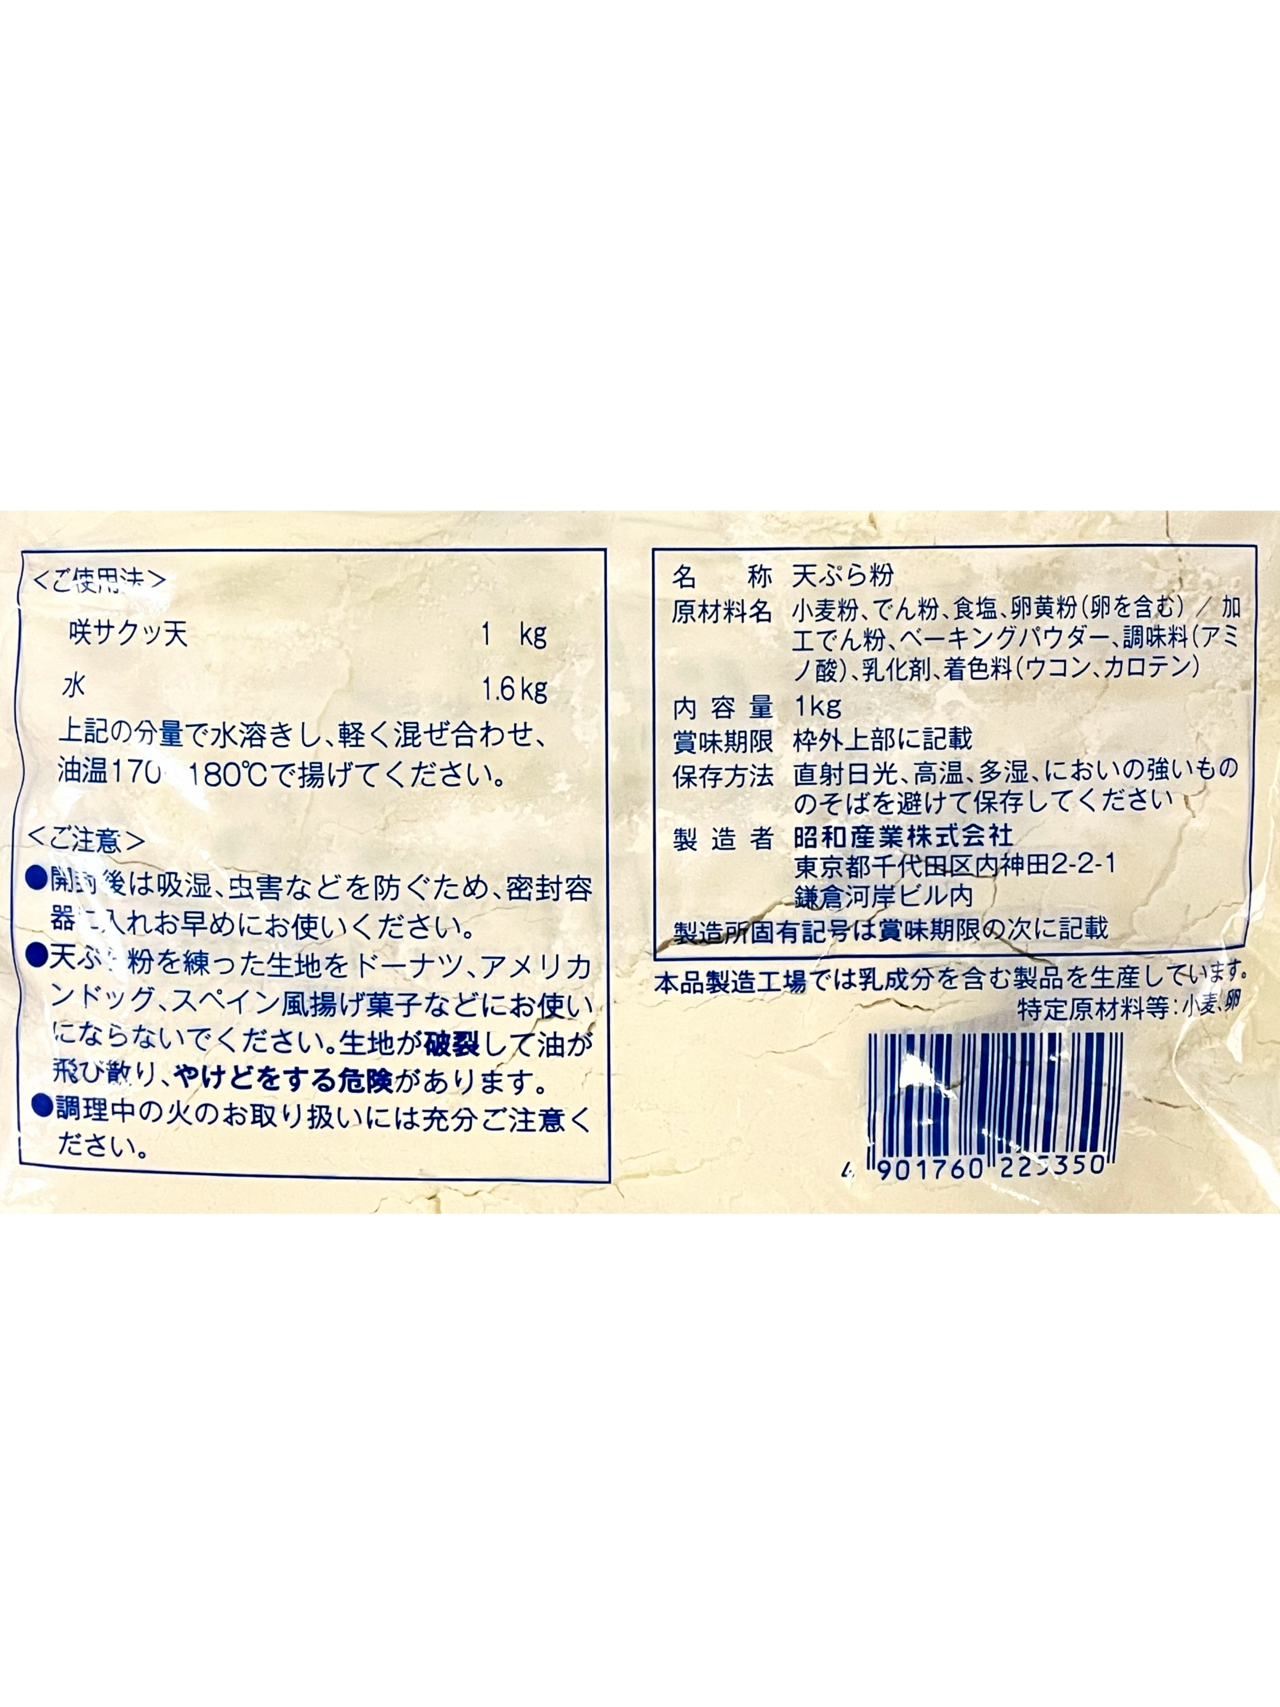 <ご使用法>
咲サクッ天 1 kg
水 1.6kg
上記の分量で水溶きし、軽く混ぜ合わせ、
油温170 180℃で揚げてください。
<ご注意>
●開封後は吸湿、虫害などを防ぐため、密封容
器に入れお早めにお使いください。
●天ぷら粉を練った生地をドーナツ、アメリカ
ンドッグ、スペイン風揚げ菓子などにお使い
にならないでください。生地が破裂して油が
飛び散り、やけどをする危険があります。
●調理中の火のお取り扱いには充分ご注意く
ださい。
名称 天ぷら粉
原材料名 小麦粉、でん粉、食塩、卵黄粉(卵を含む)/加
工でん粉、ベーキングパウダー、調味料(アミ
ノ酸)、乳化剤、着色料(ウコン、カロテン)
内容量 1kg
賞味期限 枠外上部に記載
保存方法 直射日光、高温、多湿、においの強いもの
のそばを避けて保存してください
製造者 昭和産業株式会社
東京都千代田区内神田2-2-1
鎌倉河岸ビル内
製造所固有記号は賞味期限の次に記載
本品製造工場では乳成分を含む製品を生産しています。
特定原材料等:小麦、卵
4 901760 225350